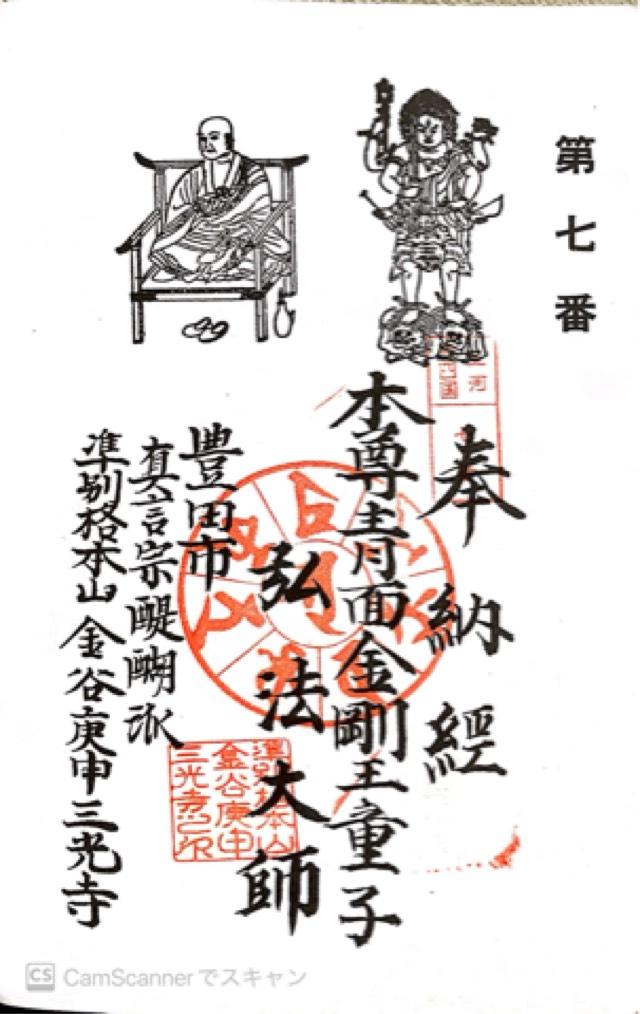 第七番
奉納経
本尊青面金剛王童子
弘法大師
豊田市
真言宗醍醐派
準別格本山 金谷庚申三光寺
三河
四国
準別格本山
金谷庚申
三光寺之印
CS CamScannerでスキャン